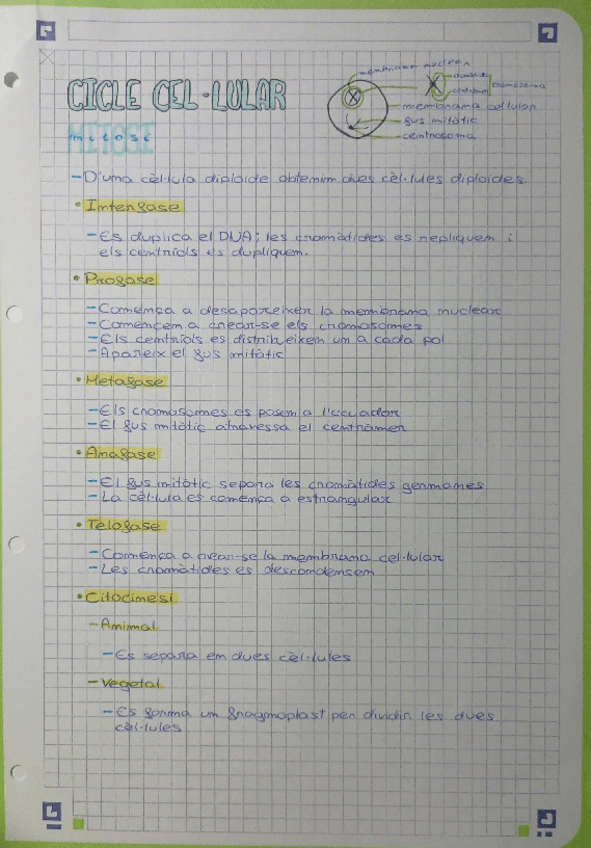 CICLE CEL·LULAR
membrana nuclear
cromàtide
centròmer
cromosoma
membrana cel·lular
fus mitòtic
centrosoma
MITOSI
mitosi
-D'una cèl·lula diploide obtenim dues cèl·lules diploides
• Interfase
-Es duplica el DNA; les cromàtides es repliquen i
els centríols es dupliquen.
• Profase
-Comença a desaparèixer la membrana nuclear
-Comencem a crear-se els cromosomes
-Els centríols es distribueixen un a cada pol
-Apareix el fus mitòtic
• Metafase
-Els cromosomes es posen a l'ecuador
-El fus mitòtic atravessa el centròmer
• Anafase
-El fus mitòtic separa les cromàtides germanes
-La cèl·lula es comença a estrangular
• Telofase
-Comença a crear-se la membrana cel·lular
-Les cromàtides es descondensen
• Citocinesi
-Animal
-Es separa en dues cèl·lules
-Vegetal
-Es forma un fragmoplast per dividir les dues
cèl·lules